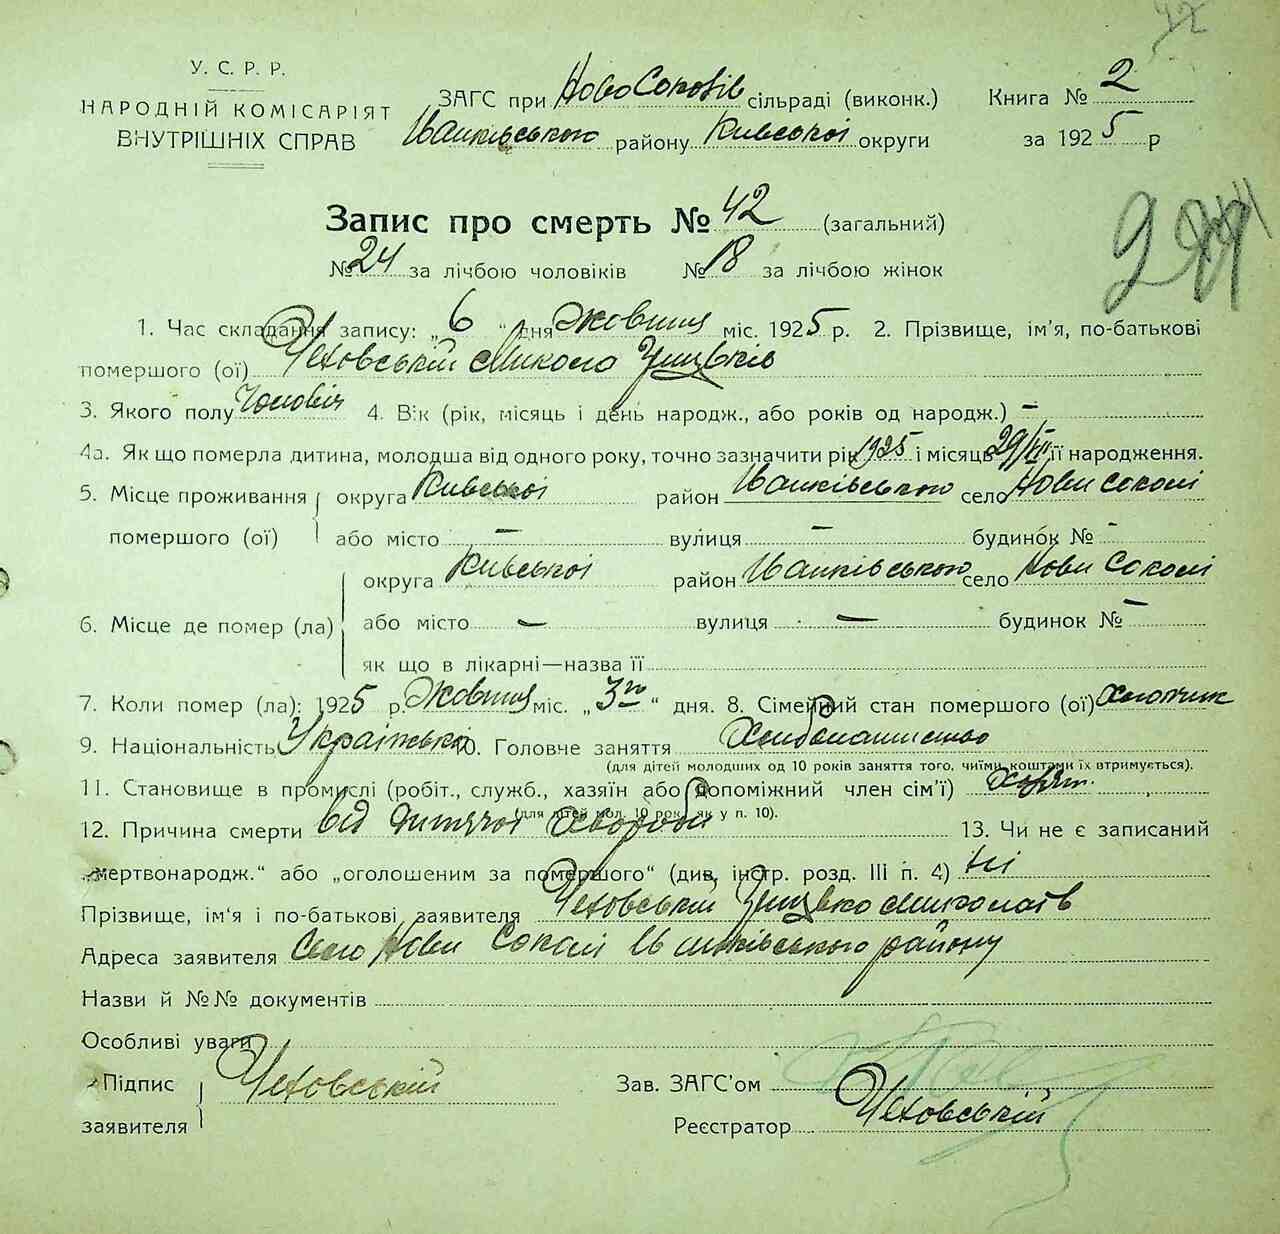 У. С. Р. Р.
НАРОДНІЙ КОМІСАРІЯТ
ВНУТРІШНІХ СПРАВ
ЗАГС при НовоСоколів сільраді (виконк.) Книга № 2
Іванківського району Київської округи за 1925 р
Запис про смерть № 42 (загальний)
№ 24 за лічбою чоловіків № 18 за лічбою жінок
1. Час складання запису: „ 6 “ дня Жовтня міс. 1925 р. 2. Прізвище, ім'я, по-батькові
помершого (ої) Чеховський Микола
3. Якого полу Чоловіч 4. Вік (рік, місяць і день народж., або років од народж.) –
4а. Як що померла дитина, молодша від одного року, точно зазначити рік 1925 і місяць 29/VII її народження.
5. Місце проживання округа Київської район Іванківського село Нови Соколі
помершого (ої) або місто – вулиця – будинок № –
округа Київської район Іванківського село Нови Соколі
6. Місце де помер (ла) або місто – вулиця – будинок № –
як що в лікарні—назва її
7. Коли помер (ла): 1925 р. Жовтня міс. „ 3го “ дня. 8. Сімейний стан помершого (ої) хлопчик
9. Національність Українська 10. Головче заняття Хліборобство
(для дітей молодших од 10 років заняття того, чиїми коштами їх втримується).
11. Становище в промислі (робіт., служб., хазяїн або допоміжний член сім'ї) хазяін.
(для дітей мол. 10 рок. як у п. 10).
12. Причина смерти від дитячої хвороби 13. Чи не є записаний
„мертвонародж.“ або „оголошеним за помершого“ (див. інстр. розд. III п. 4) Ні
Прізвище, ім'я і по-батькові заявителя Чеховський Миколаїв
Адреса заявителя Село Нови Соколі Іванківського району
Назви й №№ документів
Особливі уваги
Підпис Чеховський Зав. ЗАГС'ом
заявителя Реєстратор Чеховський